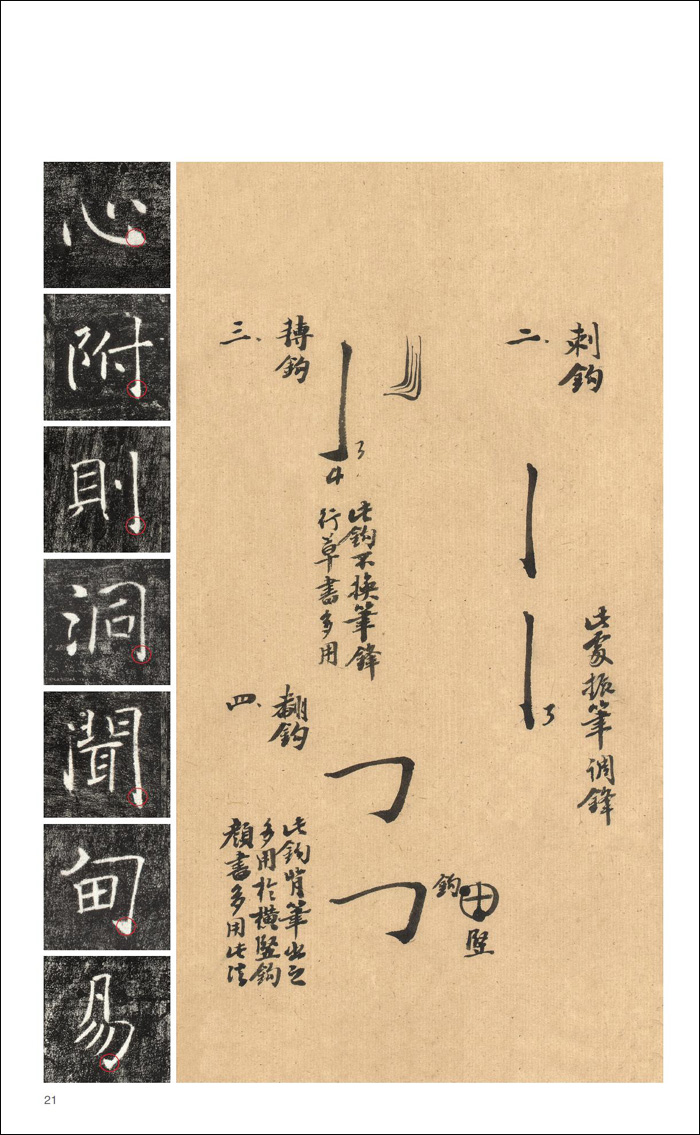 心
附
則
洞
聞
甸
易
二.
刺鈎
3
此處振筆調鋒
三.
轉鈎
3
4
此鈎不換筆鋒
行草書多用
四.
翻鈎
鈎
豎
此鈎背筆出之
多用於橫豎鈎
顏書多用此法
21